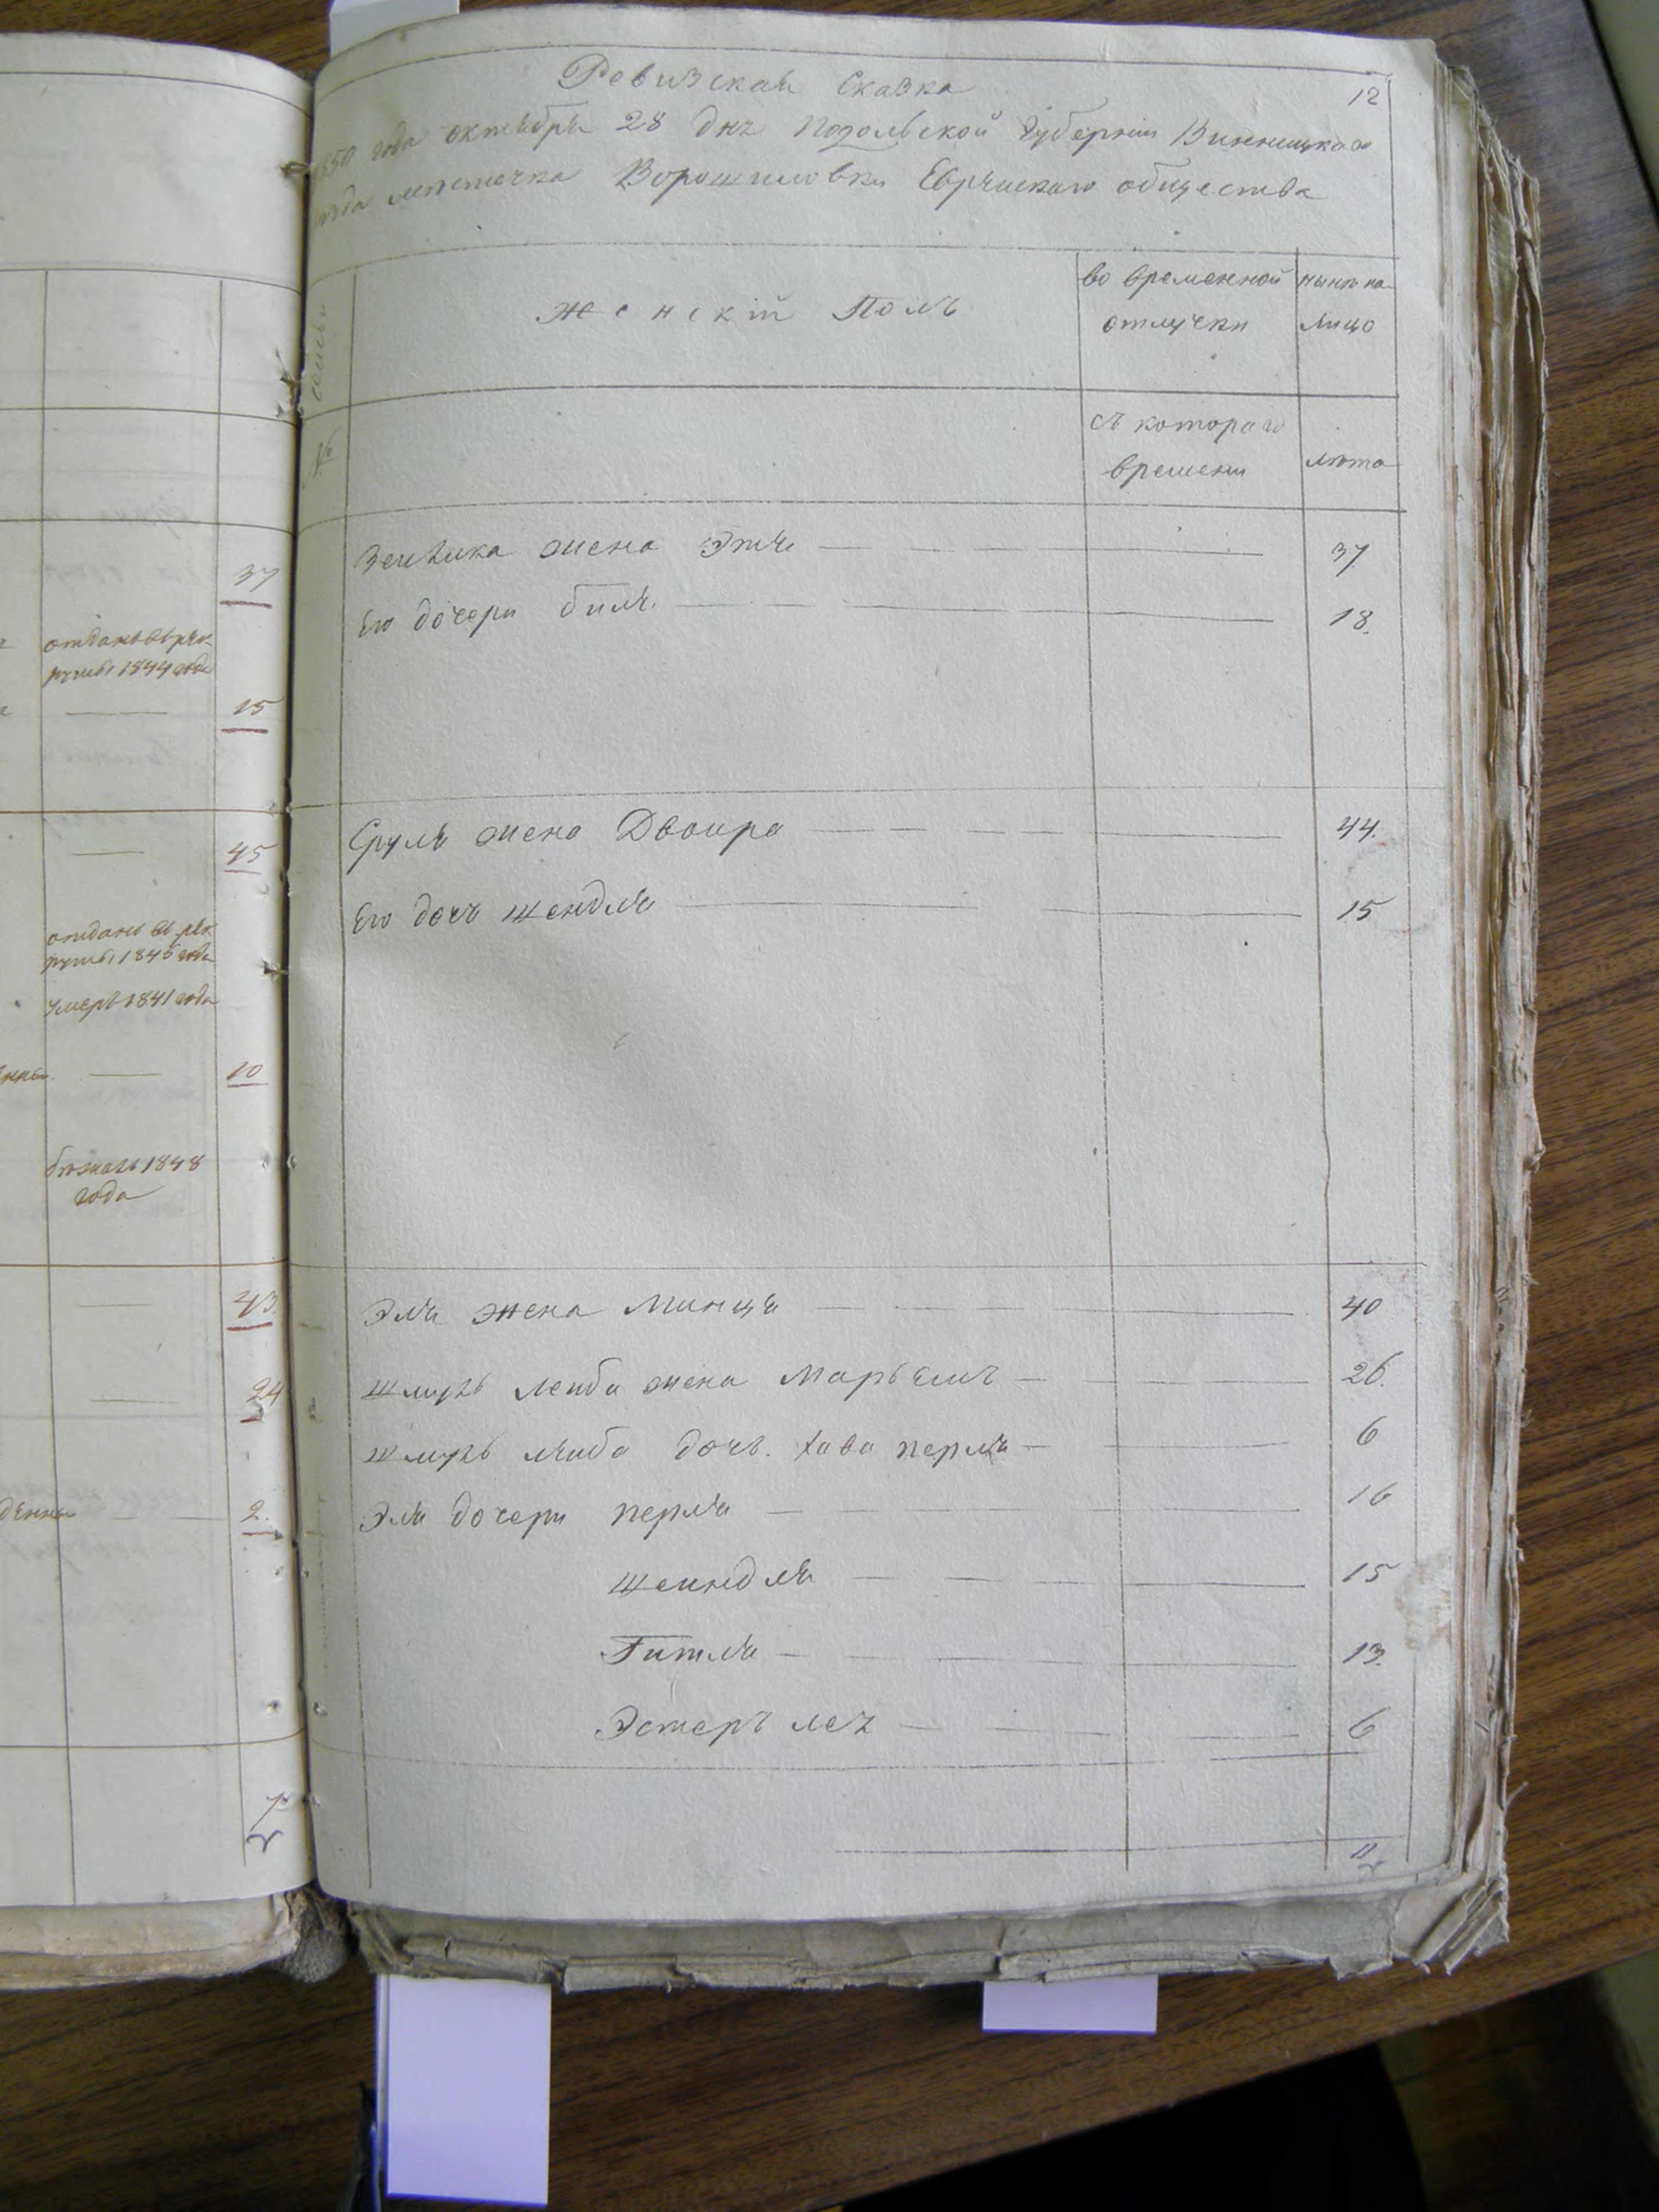 37
отданъ въ рек
руты 1844 года
15
45
отданъ въ рек
руты 1845 года
умеръ 1841 года
10
бежалъ 1848
года
43
24
2.
Ревизская Сказка
12
1850 года октября 28 дня Подольской Губернiи Винницкаго
уезда местечка Ворошиловки Еврейскаго общества
№ семьи
Женскiй Полъ
во временной
отлучки
ныне на
лицо
съ котораго
времени
лета
Зейлика жена Этя 37
Его дочери биля 18.
Сруля жена Двойра 44.
Его дочь шендля 15
Эля жена Минця 40
шмуль лейба жена Марьемъ 26.
шмуль лейба дочь. хава перля 6
Эля дочери перля 16
шейндля 15
Гитля 13.
Эстеръ лея 6
11